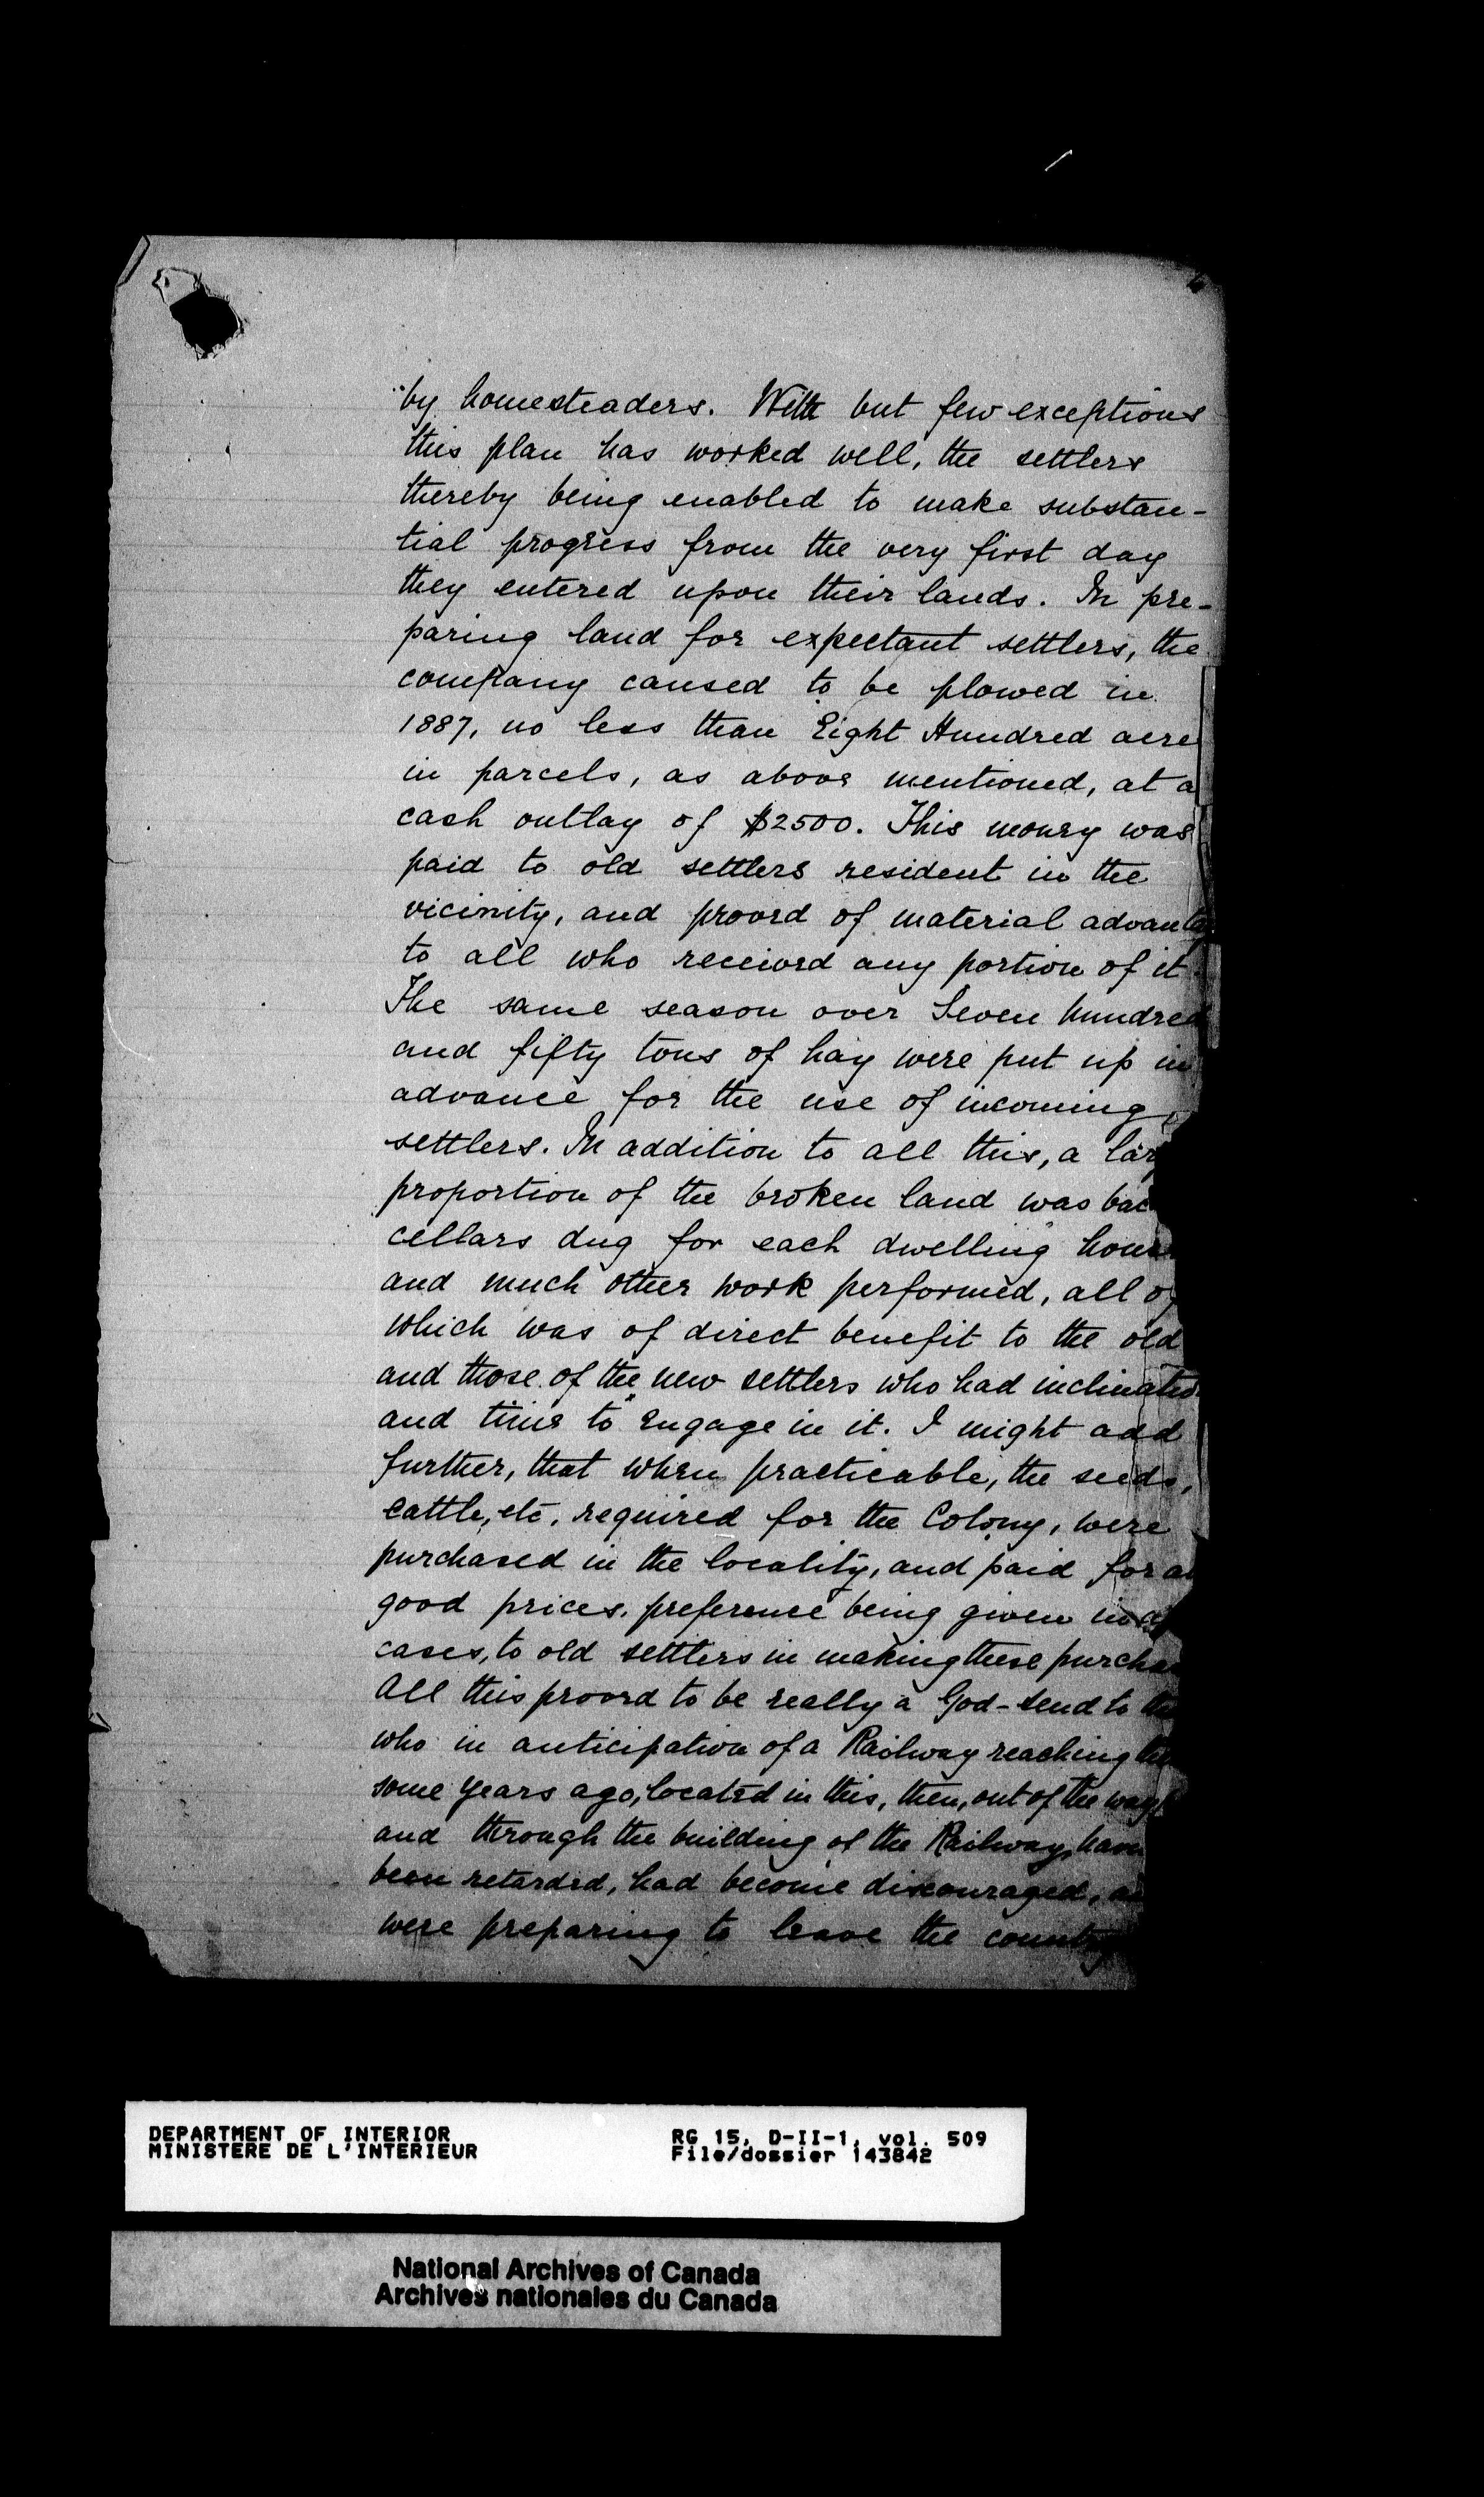 by homesteaders. With but few exceptions
this plan has worked well, the settlers
thereby being enabled to make substan-
tial progress from the very first day
they entered upon their lands. In pre-
paring land for expectant settlers, the
company caused to be plowed in
1887, no less than Eight Hundred acre
in parcels, as above mentioned, at a
cash outlay of $2500. This money was
paid to old settlers resident in the
vicinity, and proved of material advanta
to all who received any portion of it.
The same season over Seven hundred
and fifty tons of hay were put up in
advance for the use of incoming
settlers. In addition to all this, a lar
proportion of the broken land was bac
cellars dug for each dwelling hous
and much other work performed, all of
which was of direct benefit to the old
and those of the new settlers who had inclinatio
and time to engage in it. I might add
further, that when practicable, the seeds,
cattle, etc, required for the Colony, were
purchased in the locality, and paid for at
good prices, preference being given in a
cases, to old settlers in making these purcha
All this proved to be really a God-send to th
who in anticipation of a Railway reaching the
some years ago, located in this, then, out of the way
and through the building of the Railway, have
been retarded, had become discouraged, a
were preparing to leave the country
DEPARTMENT OF INTERIOR
MINISTERE DE L'INTERIEUR
RG 15, D-II-1, vol. 509
File/dossier 143842
National Archives of Canada
Archives nationales du Canada